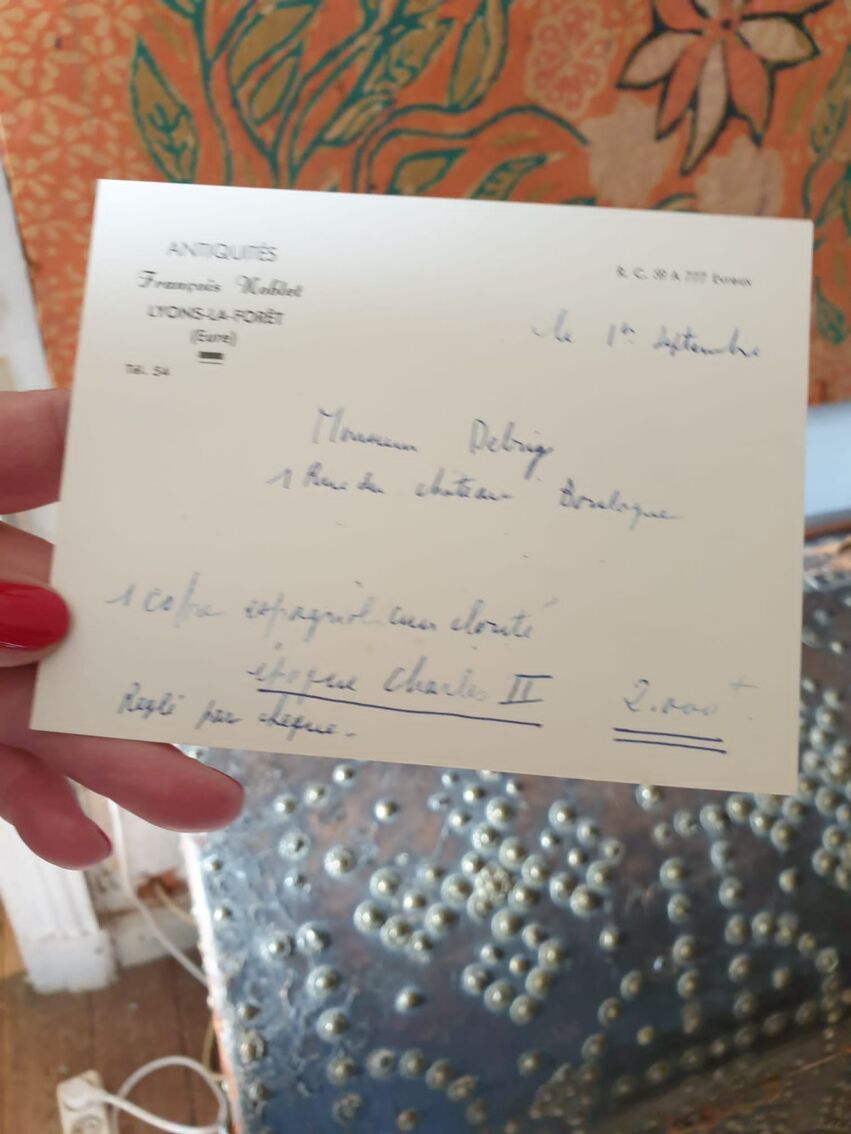 ANTIQUITÉS
François Noblet
LYONS-LA-FORÊT
(Eure)
Tél. 54
R. C. 59 A 777 Evreux
le 1er septembre
Monsieur
1 Rue du chateau Boulogne
1 coffre espagnol cuir clouté
époque Charles II 2.000
Réglé par chèque.